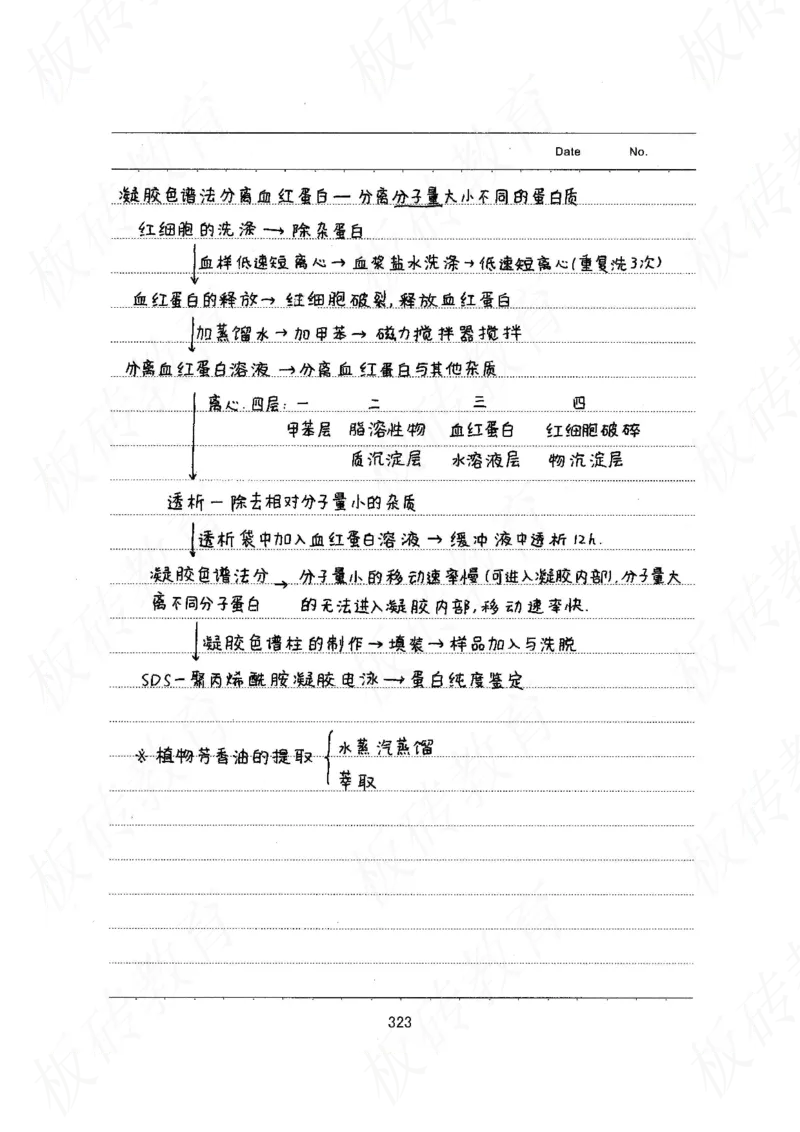 Date No.
凝胶色谱法分离血红蛋白—分离分子量大小不同的蛋白质
红细胞的洗涤→除杂蛋白
血样低速短离心→血浆盐水洗涤→低速短离心(重复洗3次)
血红蛋白的释放→红细胞破裂,释放血红蛋白
加蒸馏水→加甲苯→磁力搅拌器搅拌
分离血红蛋白溶液→分离血红蛋白与其他杂质
离心.四层:一 二 三 四
甲苯层 脂溶性物 血红蛋白 红细胞破碎
质沉淀层 水溶液层 物沉淀层
透析—除去相对分子量小的杂质
透析袋中加入血红蛋白溶液→缓冲液中透析12h.
凝胶色谱法分→分子量小的移动速率慢(可进入凝胶内部),分子量大
离不同分子蛋白 的无法进入凝胶内部,移动速率快.
凝胶色谱柱的制作→填装→样品加入与洗脱
SDS—聚丙烯酰胺凝胶电泳→蛋白纯度鉴定
※植物芳香油的提取{水蒸汽蒸馏
萃取
323
板砖教育